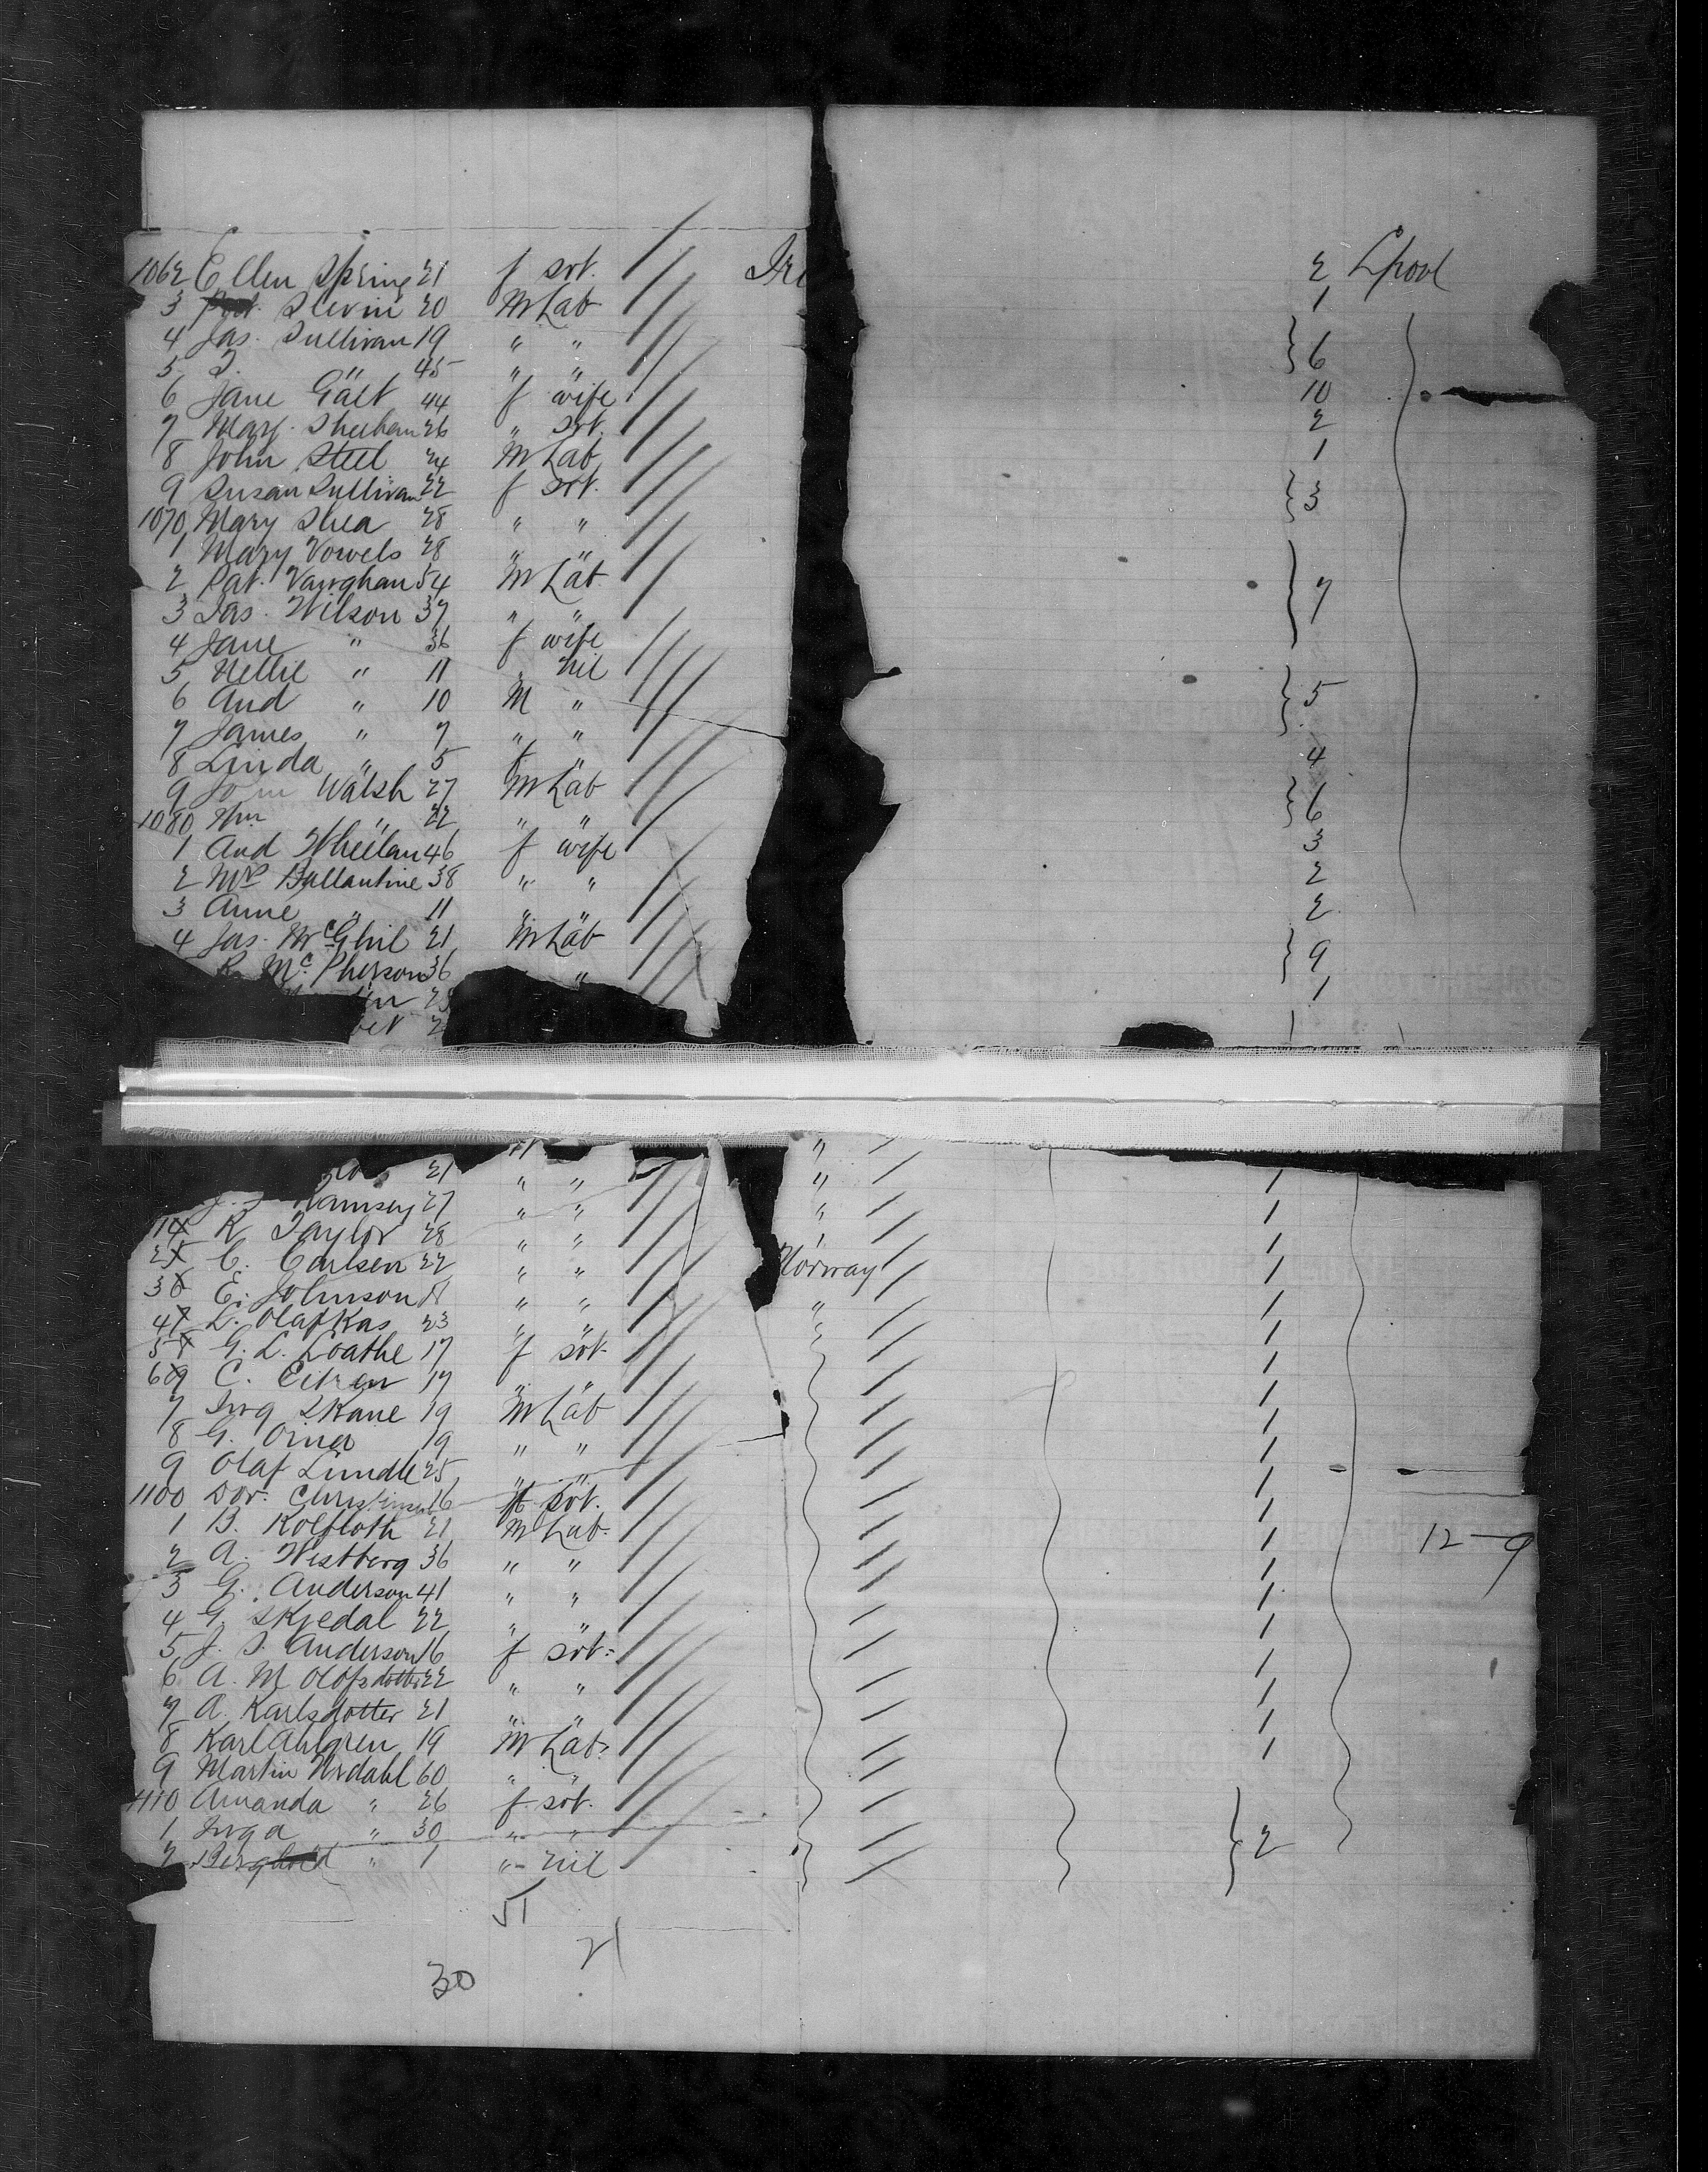 1062 Ellen Spring 21 f svt. Ire 2 Lpool
3 Slevin 20 M Lab 1
4 Jas. Sullivan 19 " "
5 J. " 45 " " 6
6 Jane Galt 44 f wife 10
7 Mary Sheehan 26 " svt. 2
8 John Steel 24 M Lab 1
9 Susan Sullivan 22 f svt. 3
1070 Mary Shea 28 " "
1 Mary Vowels 28 " "
2 Pat. Vaughan 54 M Lab 7
3 Jas. Wilson 37 " "
4 Jane " 36 f wife
5 Nellie " 11 " nil 5
6 And " 10 M "
7 James " 7 " "
8 Linda " 5 f " 4
9 John Walsh 27 M Lab 6
1080 Wm " 22 " "
1 And Wheelan 46 f wife 3
2 Mrs Ballantine 38 " " 2
3 Anne " 11 " " 2
4 Jas. McGhil 21 M Lab 9
R. McPherson 36 " 1
21 " " " 1
Ramsey 27 " " " 1
1 R. Taylor 28 " " 1
2 C. Carlsen 22 " " Norway 1
3 E. Johnson " " " 1
4 L. Olafkas 23 " " " 1
5 G. L. Loathe 17 f svt. 1
6 C. Eitren 17 " " 1
7 Ing Skane 19 M Lab 1
8 G. Oines 19 " " 1
9 Olaf Lundh 25 " " 1
1100 Dor. Christinsen 16 f svt. 1
1 B. Kolfloth 21 M Lab. 1 12-9
2 A. Westberg 36 " " 1
3 G. Anderson 41 " " 1
4 G. Skjedal 22 " " 1
5 J. S. Anderson 16 f svt. 1
6 A. M Olofsdotter 22 " " 1
7 A. Karlsdotter 21 " " 1
8 Karl Ahlgren 19 M Lab. 1
9 Martin Nrdahl 60 " "
1110 Amanda " 26 f svt.
1 Inga " 30 " " 2
2 " 1 " nil
51
21
30